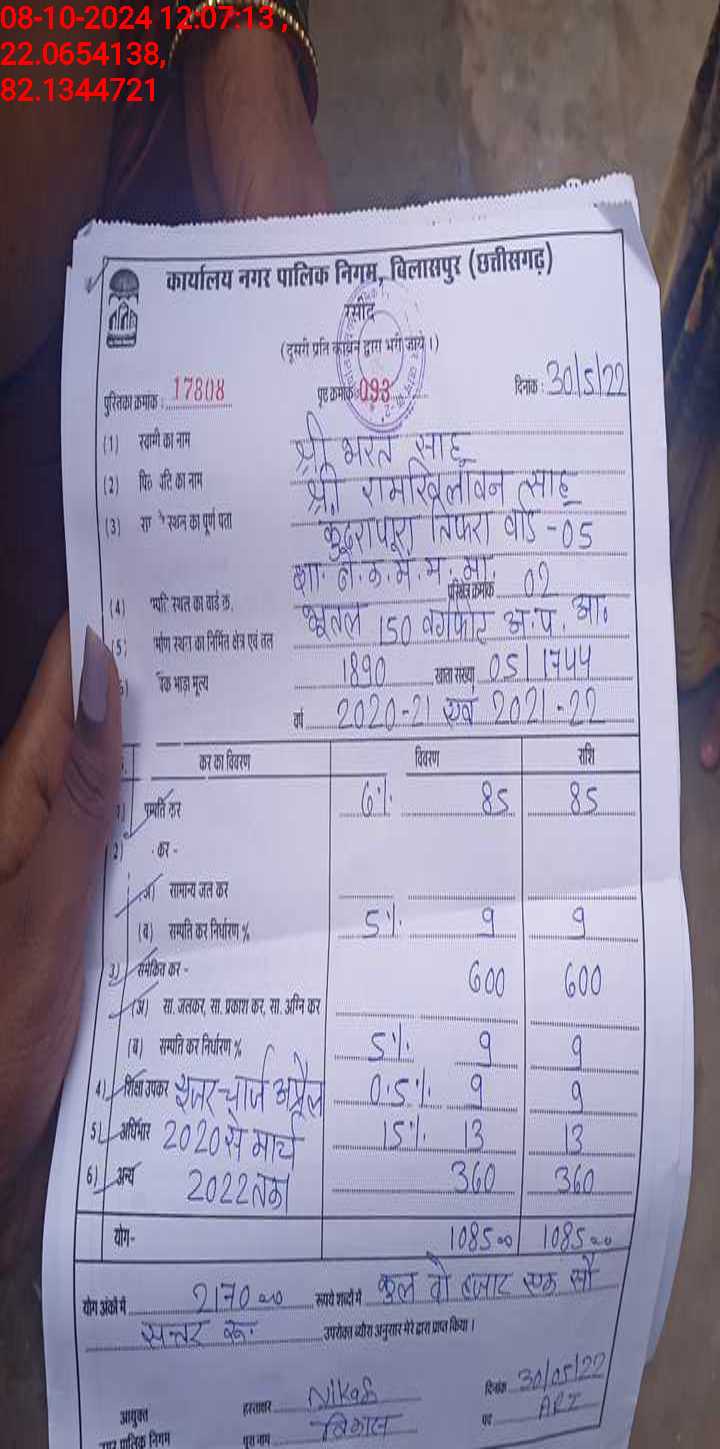 08-10-2024 12:07:13 ,
22.0654138,
82.1344721
कार्यालय नगर पालिक निगम, बिलासपुर (छत्तीसगढ़)
रसीद
(दूसरी प्रति कार्बन द्वारा भरी जाये।)
पुस्तिका क्रमांक : 17808 पृष्ठ क्रमांक 093 दिनांक : 30/5/22
(1) स्वामी का नाम श्री भरत साहू
(2) पति का नाम श्री रामखिलावन साहू
(3) स्थान का पूर्ण पता कुदरापारा तिफरा वार्ड -05
(4) स्थल का वार्ड क्र. परिक्षेत्र क्रमांक 02
(5) स्थान का निर्मित क्षेत्र एवं तल भूतल 150 वर्गफीट अ.प. आ.
भाड़ा मूल्य 1890 खाता संख्या 05/1744
वर्ष 2020-21 एवं 2021-22
कर का विवरण विवरण राशि
1) सम्पति कर 6% 85 85
2) कर -
अ) सामान्य जल कर
(ब) सम्पति कर निर्धारण % 5% 9 9
3) समेकित कर - 600 600
(अ) सा. जलकर, सा. प्रकाश कर, सा. अग्नि कर
(ब) सम्पति कर निर्धारण % 5% 9 9
4) शिक्षा उपकर यूजर चार्ज अप्रैल 0.5% 9 9
5) अधिभार 2020 से मार्च 15% 13 13
6) अन्य 2022 तक 360 360
योग- 1085=00 1085=00
योग अंकों में 2170=00 रूपये शब्दों में कुल दो हजार एक सौ
सत्तर रू. उपरोक्त ब्यौरा अनुसार मेरे द्वारा प्राप्त किया।
आयुक्त हस्ताक्षर Nikas दिनांक 30/05/22
नगर पालिक निगम पूरा नाम विकास पद ARI